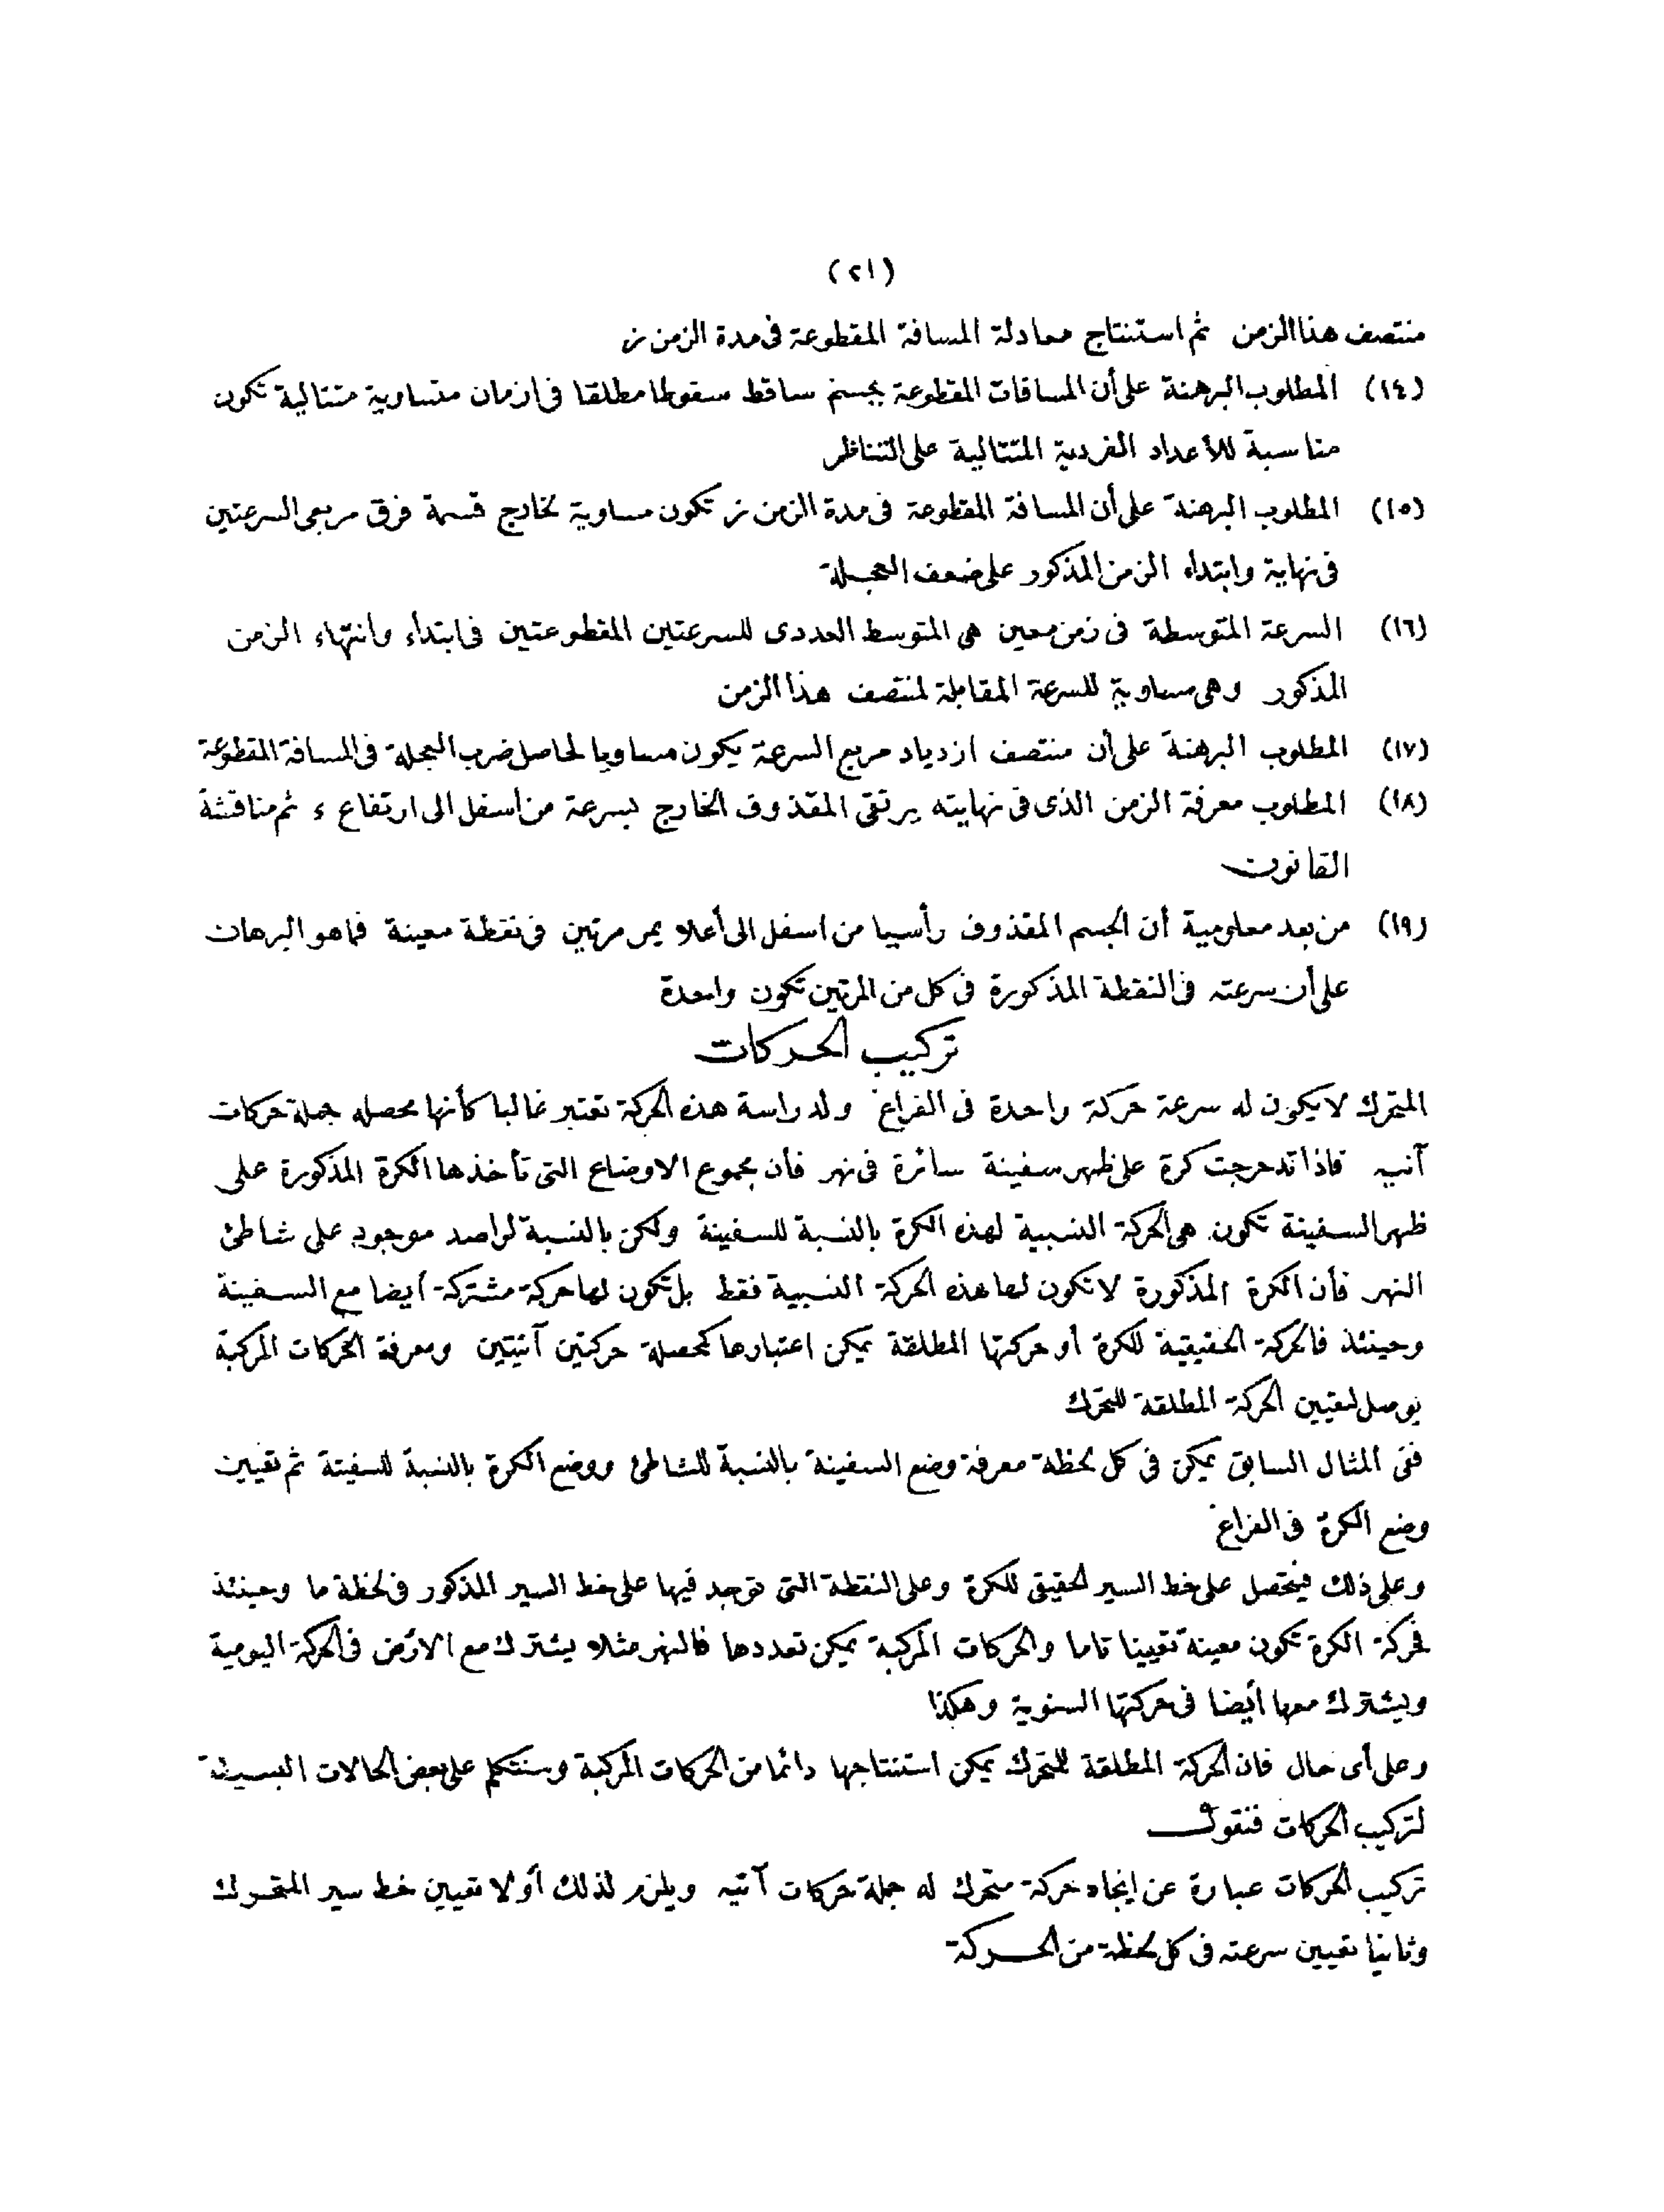 (٢١)
منتصف هذا الزمن ثم استنتاج معادلة المسافة المقطوعة فى مدة الزمن ز
(١٤) المطلوب البرهنة على أن المسافات المقطوعة بجسم ساقط سقوطا مطلقا فى ازمان متساوية متتالية تكون
مناسبة للأعداد الفردية المتتالية على التناظر
(١٥) المطلوب البرهنة على أن المسافة المقطوعة فى مدة الزمن ز تكون مساوية لخارج قسمة فرق مربعى السرعتين
فى نهاية وابتداء الزمن المذكور على ضعف العجلة
(١٦) السرعة المتوسطة فى زمن معين هى المتوسط العددى للسرعتين المقطوعتين فى ابتداء وانتهاء الزمن
المذكور وهى مساوية للسرعة المقابلة لمنتصف هذا الزمن
(١٧) المطلوب البرهنة على أن منتصف ازدياد مربع السرعة يكون مساويا لحاصل ضرب العجلة فى المسافة المقطوعة
(١٨) المطلوب معرفة الزمن الذى فى نهايته يرتقى المقذوف الخارج بسرعة من اسفل الى ارتفاع ء ثم مناقشة
القانون
(١٩) من بعد معلومية أن الجسم المقذوف رأسيا من اسفل الى أعلا يمر مرتين فى نقطة معينة فما هو البرهان
على أن سرعته فى النقطة المذكورة فى كل من المرتين تكون واحدة
تركيب الحركات
المتحرك لا يكون له سرعة حركة واحدة فى الفراغ ولدراسة هذه الحركة تعتبر غالبا كأنها محصله جملة حركات
آنيه فاذا تدحرجت كرة على ظهر سفينة سائرة فى نهر فأن مجموع الاوضاع التى تأخذها الكرة المذكورة على
ظهر السفينة تكون هى الحركة النسبية لهذه الكرة بالنسبة للسفينة ولكن بالنسبة لراصد موجود على شاطئ
النهر فأن الكرة المذكورة لا تكون لها هذه الحركة النسبية فقط بل تكون لها حركة مشتركة أيضا مع السفينة
وحينئذ فالحركة الحقيقية للكرة أو حركتها المطلقة يمكن اعتبارها كمحصلة حركتين آنيتين ومعرفة الحركات المركبة
يوصل لتعيين الحركة المطلقة للمتحرك
ففى المثال السابق يمكن فى كل لحظة معرفة وضع السفينة بالنسبة للشاطئ ووضع الكرة بالنسبة للسفينة ثم تعيين
وضع الكرة فى الفراغ
وعلى ذلك فيتحصل على خط السير الحقيقى للكرة وعلى النقطة التى توجد فيها على خط السير المذكور فى لحظة ما وحينئذ
فحركة الكرة تكون معينة تعيينا تاما والحركات المركبة يمكن تعددها فالنهر مثلا يشترك مع الارض فى الحركة اليومية
ويشترك معها أيضا فى حركتها السنوية وهكذا
وعلى أى حال فان الحركة المطلقة للمتحرك يمكن استنتاجها دائما من الحركات المركبة وسنتكلم على بعض الحالات البسيطة
لتركيب الحركات فنقول
تركيب الحركات عبارة عن ايجاد حركة متحرك له جملة حركات آنيه ويلزم لذلك أولا تعيين خط سير المتحرك
وثانيا تعيين سرعته فى كل لحظة من الحركة